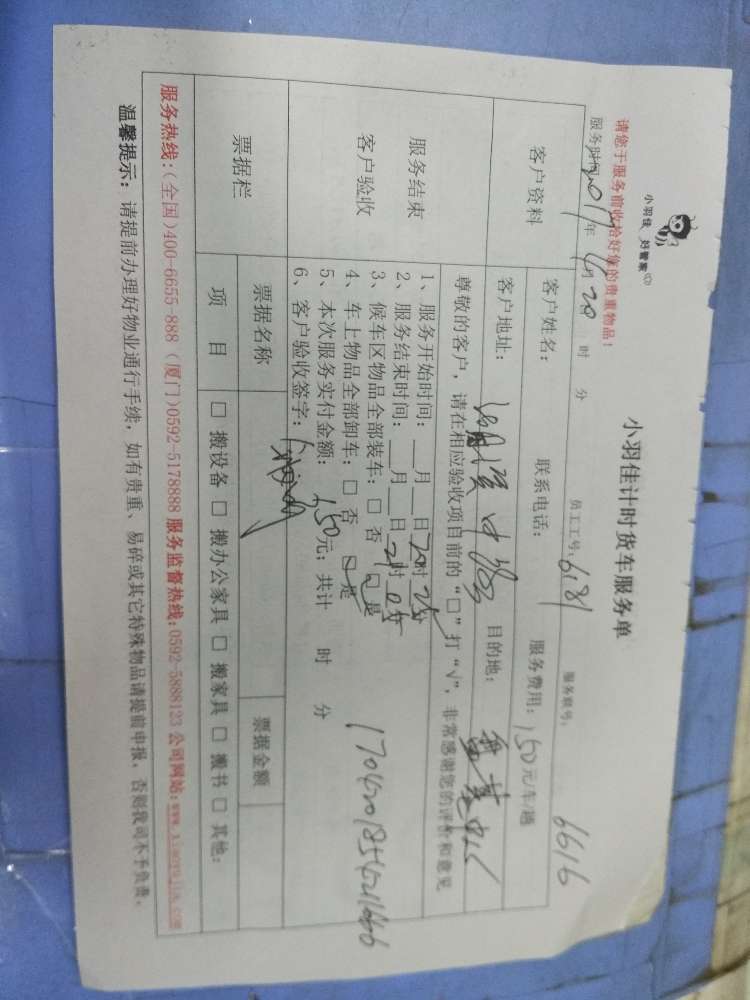 小羽佳 好管家
小羽佳计时货车服务单
请您于服务前收拾好您的贵重物品!
员工工号: 6181 服务单号: 6616
服务时间: 2017年 4月 20 时 分
客户资料
客户姓名: 联系电话: 服务费用: 150元/车/趟
客户地址: 目的地:
尊敬的客户,请在相应验收项目前的“□”打“√”,非常感谢您的评价和意见
服务结束
客户验收
1、服务开始时间: __月__日20时25分
2、服务结束时间: __月__日21时0分
3、候车区物品全部装车: □ 否 □是
4、车上物品全部卸车: □ 否 □是
5、本次服务实付金额: 150元; 共计 时 分
6、客户验收签字:
票据栏
票据名称 票据金额
项 目 □ 搬设备 □ 搬办公家具 □ 搬家具 □ 搬书 □ 其他:
服务热线:(全国)400-6655-888 (厦门)0592-5178888 服务监督热线:0592-5888123 公司网站:www.xiaoyujia.com
温馨提示: 请提前办理好物业通行手续,如有贵重、易碎或其它特殊物品请提前申报,否则我司不予负责。